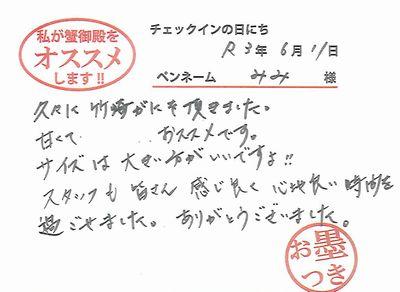 私が蟹御殿を
オススメ
します!!
チェックインの日にち
R3年6月11日
ペンネーム みみ 様
久々に竹崎がにを頂きました。
甘くて おススメです。
サイズは大きい方がいいですよ!!
スタッフも皆さん感じ良く心地良い時間を
過ごせました。ありがとうございました。
お墨
つき